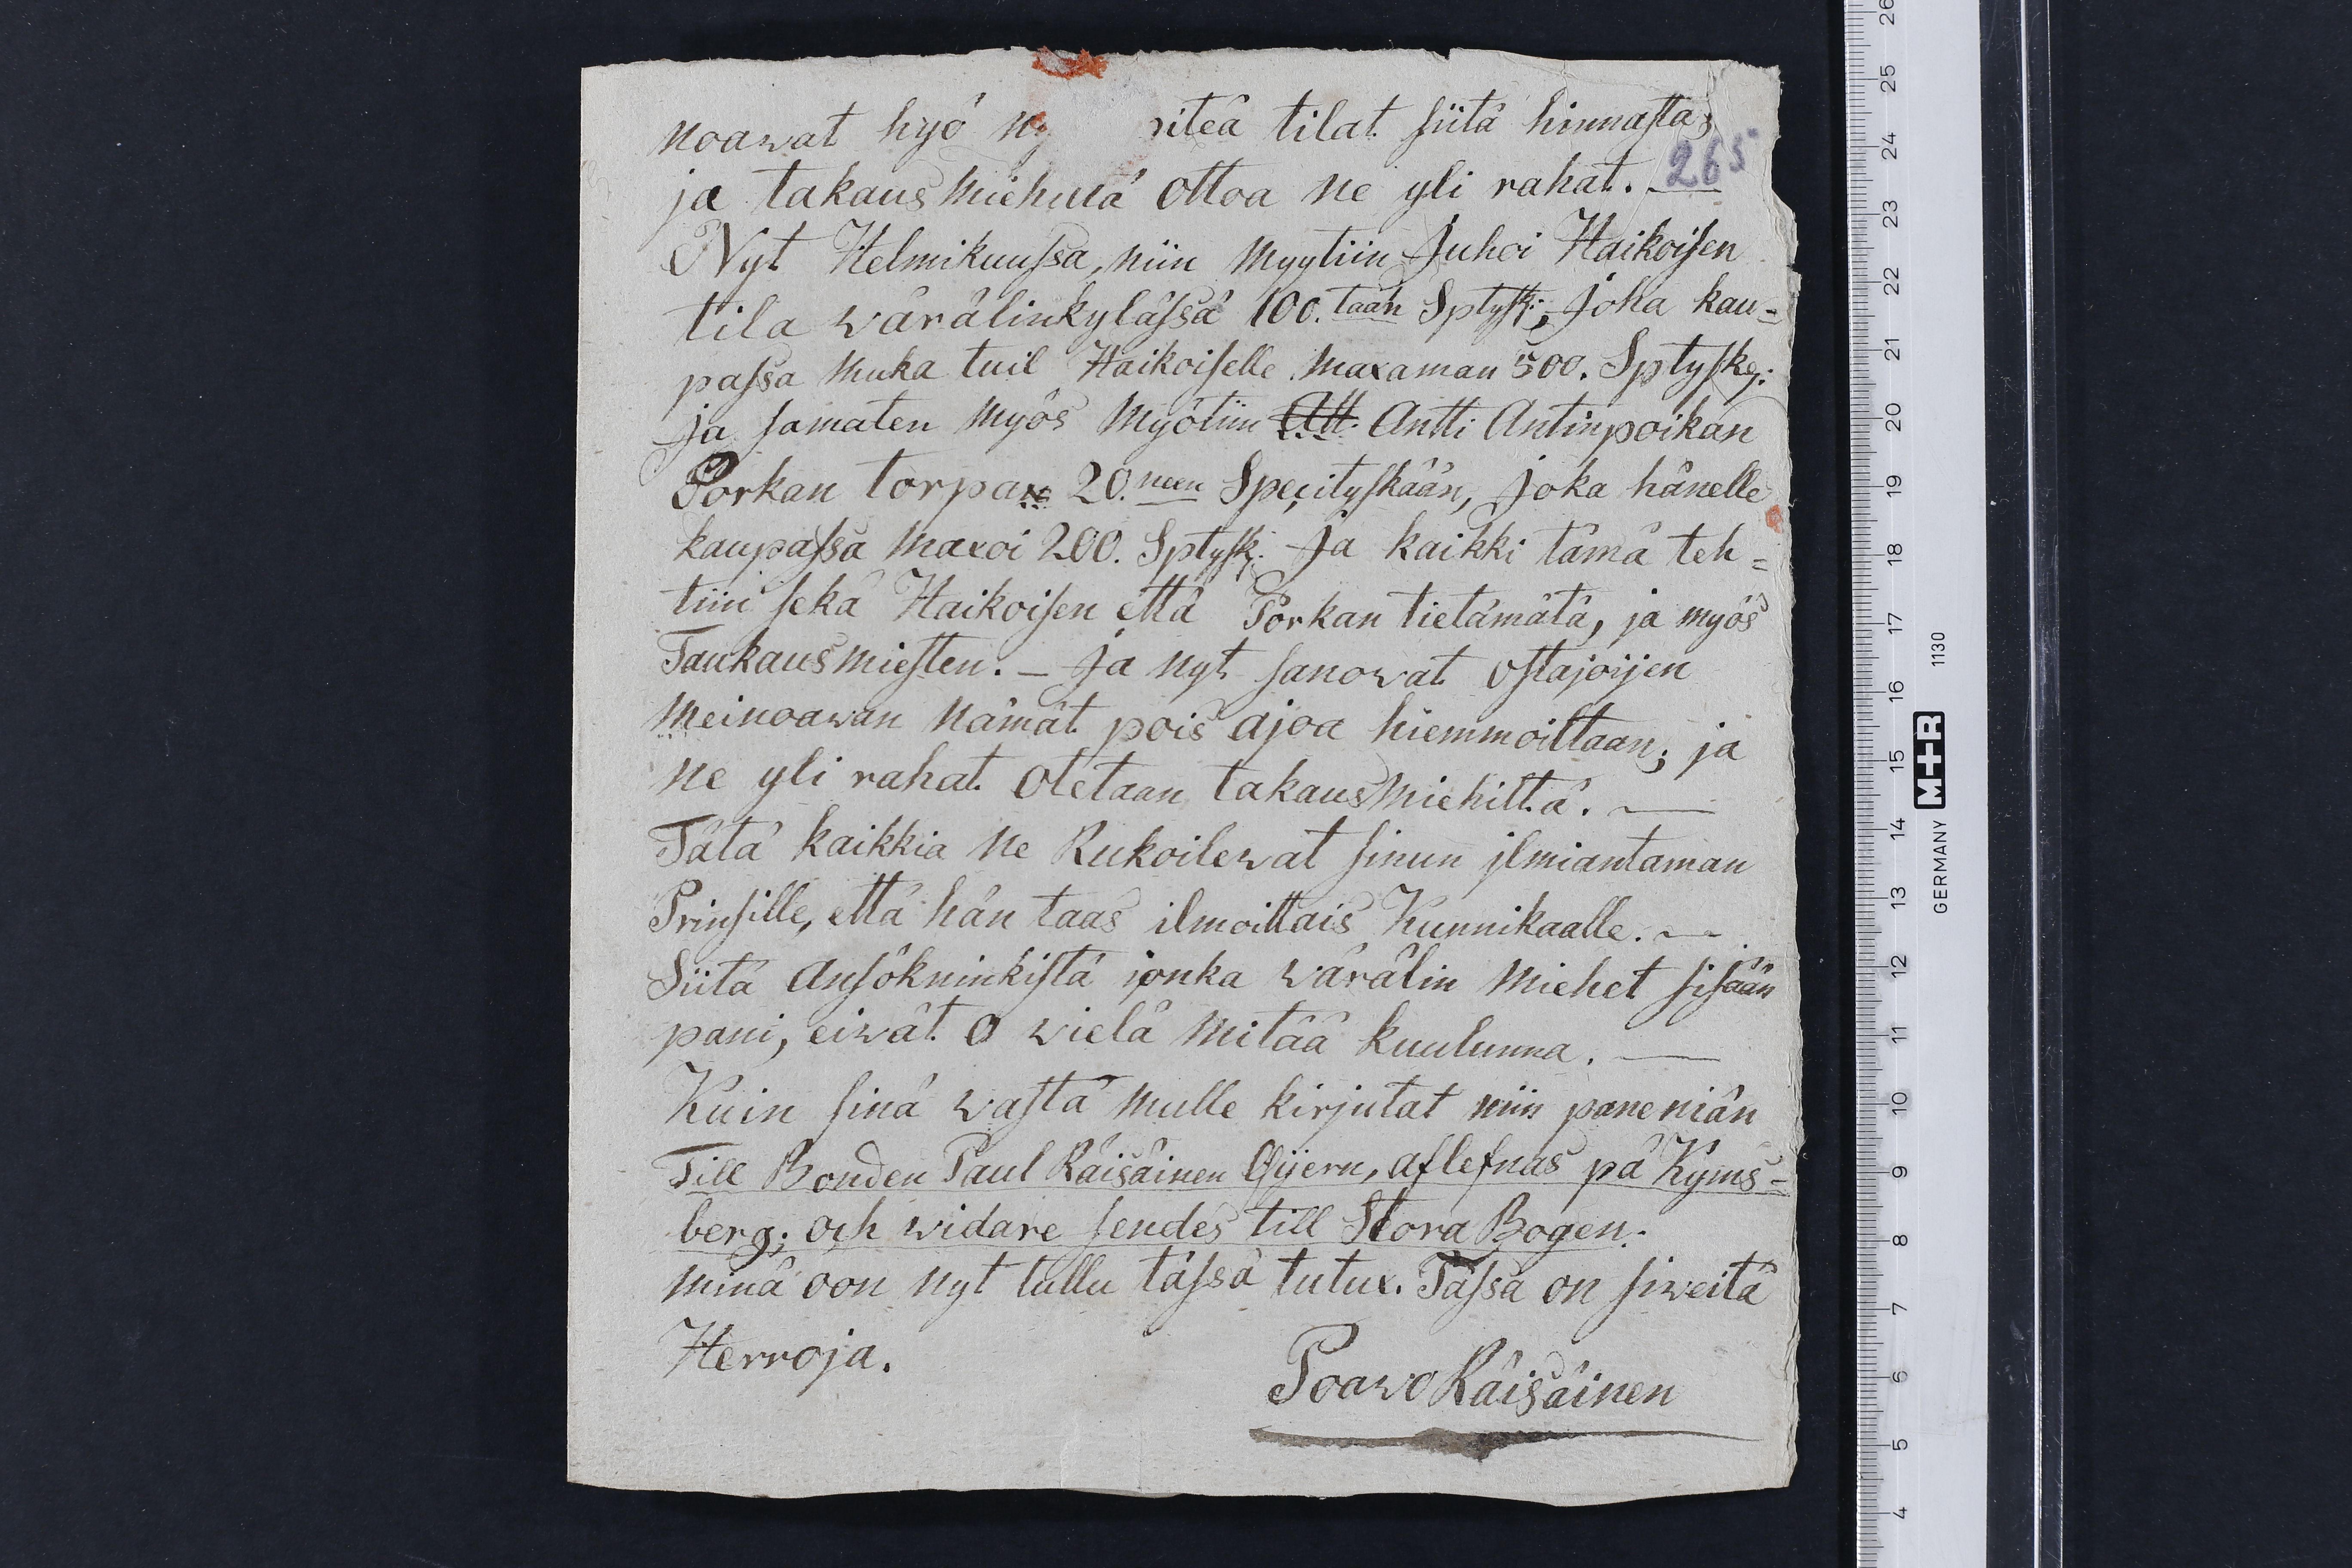 noawat hyö ny iteä tilat siitä hinnasta;
265
ja takausmiehiltä ottoa ne yli rahat. —
Nyt Helmikuussa, niin myytiin Juhoi Haikoisen
tila wärälinkylässä 100. taan Sptysk:; Joka kau=
passa muka tuil Haikoiselle maxaman 500. Sptysk:
ja samaten myös myötiin Att. Antti Antinpoikan
Porkan torpan 20. neen Specityskään, Joka hänelle
kaupassa maxoi 200. Sptysk: Ja kaikki tämä teh=
tiin sekä Haikoisen että Porkan tietämätä, ja myös
Taukausmiesten. — Ja nyt sanowat ostajoijen
meinoawan nämät pois ajoa hiemmoiltaan; ja
ne yli rahat otetaan takausmiehiltä. —
Tätä kaikkia ne Rukoilewat sinun ilmiantaman
Prinsille, että hän taas ilmoittais Kunnikaalle. —
Siitä Ansökninkistä jonka wärälin miehet sisään
pani, eiwät o wielä mitää kuulunna. —
Kuin sinä wastä mulle kirjutat niin pane niän
Till Bonden Paul Räisäinen Ofijern, aflefnas på Kyms=
berg; och widare sendes till Stora Bogen.
minä oon nyt tullu tässä tutux. Tässä on siweitä
Herroja.
Poawo Räisäinen
26
25
24
23
22
21
20
19
18
17
16
15
14
13
12
11
10
9
8
7
6
5
4
GERMANY M+R 1130